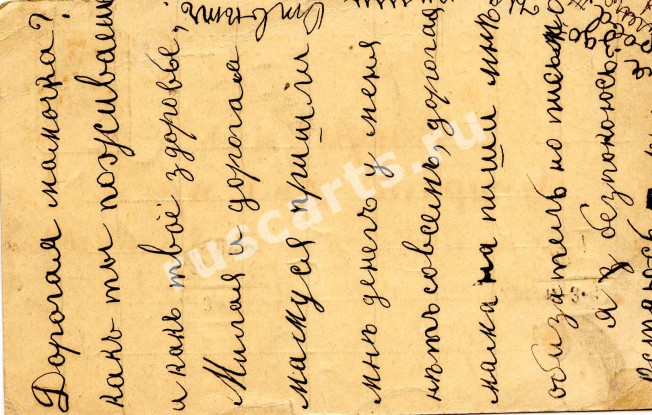 Дорогая мамочка?
какъ ты поживаешь
и какъ твоё здоровье,
Милая и дорогая
мамуся пришли
мнѣ денегъ у меня
нѣтъ совсемъ, дорогая
мама на пиши мнѣ
обизателно письмо
я безпокоюсь.
Остаюсь
Отвѣтъ
ruscarts.ru